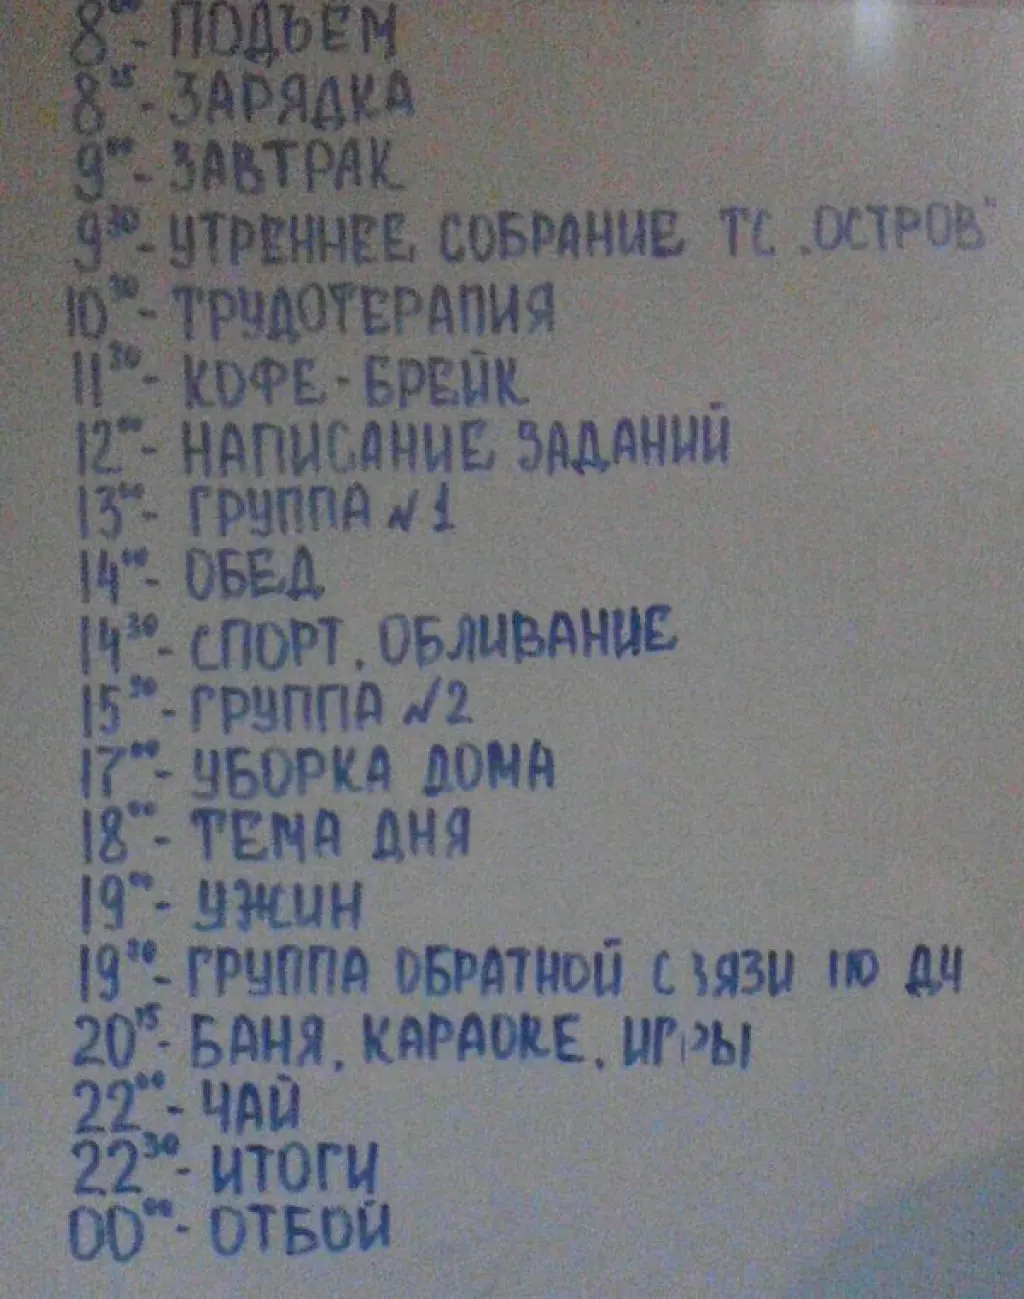 8⁰⁰ - ПОДЪЁМ
8¹⁵ - ЗАРЯДКА
9⁰⁰ - ЗАВТРАК
9³⁰ - УТРЕННЕЕ СОБРАНИЕ ТС „ОСТРОВ"
10³⁰ - ТРУДОТЕРАПИЯ
11³⁰ - КОФЕ-БРЕЙК
12⁰⁰ - НАПИСАНИЕ ЗАДАНИЙ
13⁰⁰ - ГРУППА №1
14⁰⁰ - ОБЕД
14³⁰ - СПОРТ, ОБЛИВАНИЕ
15³⁰ - ГРУППА №2
17⁰⁰ - УБОРКА ДОМА
18⁰⁰ - ТЕМА ДНЯ
19⁰⁰ - УЖИН
19³⁰ - ГРУППА ОБРАТНОЙ СВЯЗИ ПО ДЧ
20¹⁵ - БАНЯ, КАРАОКЕ, ИГРЫ
22⁰⁰ - ЧАЙ
22³⁰ - ИТОГИ
00⁰⁰ - ОТБОЙ